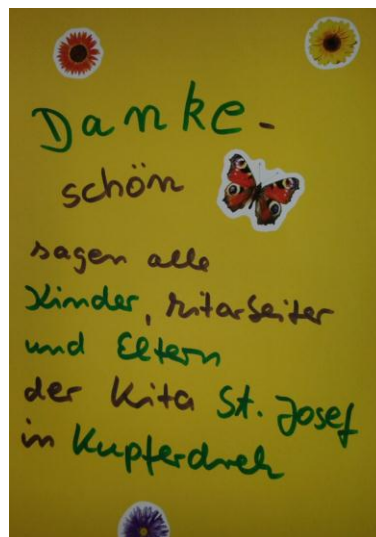 Danke-
schön
sagen alle
Kinder, Mitarbeiter
und Eltern
der Kita St. Josef
in Kupferdreh